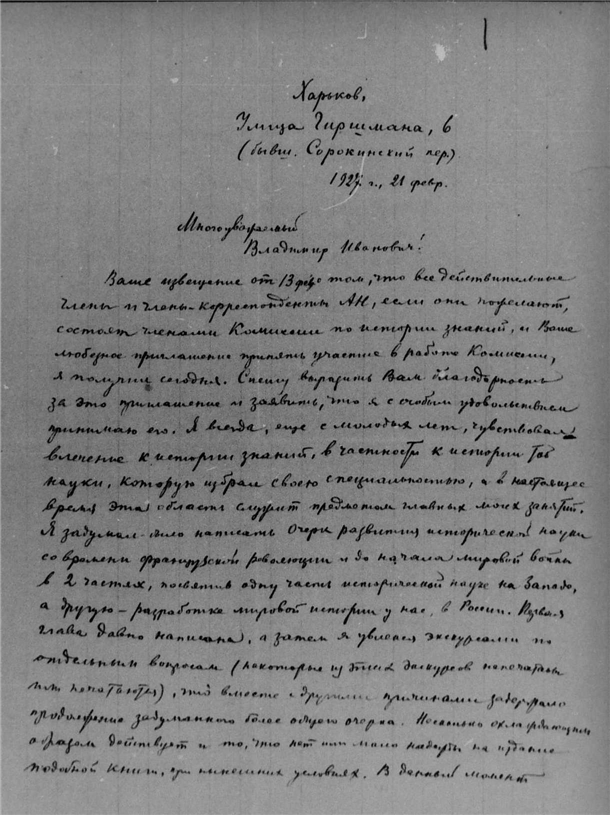 Харьков,
Улица Гиршмана, 6
(бывш. Сорокинский пер.)
1927 г., 21 февр.
Многоуважаемый
Владимир Иванович!
Ваше извещение от 13 о том, что все действительные
члены и члены-корреспонденты АН, если они пожелают,
состоят членами Комиссии по истории знаний, и Ваше
любезное приглашение принять участие в работе Комиссии,
я получил сегодня. Спешу выразить Вам благодарность
за это приглашение и заявить, что я с особым удовольствием
принимаю его. Я всегда, еще с молодых лет, чувствовал
влечение к истории знаний, в частности к истории той
науки, которую избрал своею специальностью, а в настоящее
время эта область служит предметом главных моих занятий.
Я задумал было написать Очерк развития исторической науки
со времени французской революции и до начала мировой войны
в 2 частях, посвятить одну часть исторической науке на Западе,
а другую – разработке мировой истории у нас, в России. Первая
глава давно написана, а затем я увлекся экскурсами по
отдельным вопросам (некоторые из этих экскурсов напечатаны
или печатаются), что вместе с другими причинами задержало
продолжение задуманного более общего очерка. Несколько охлаждающим
образом действует и то, что нет или мало надежды на издание
подобной книги, при нынешних условиях. В данный момент